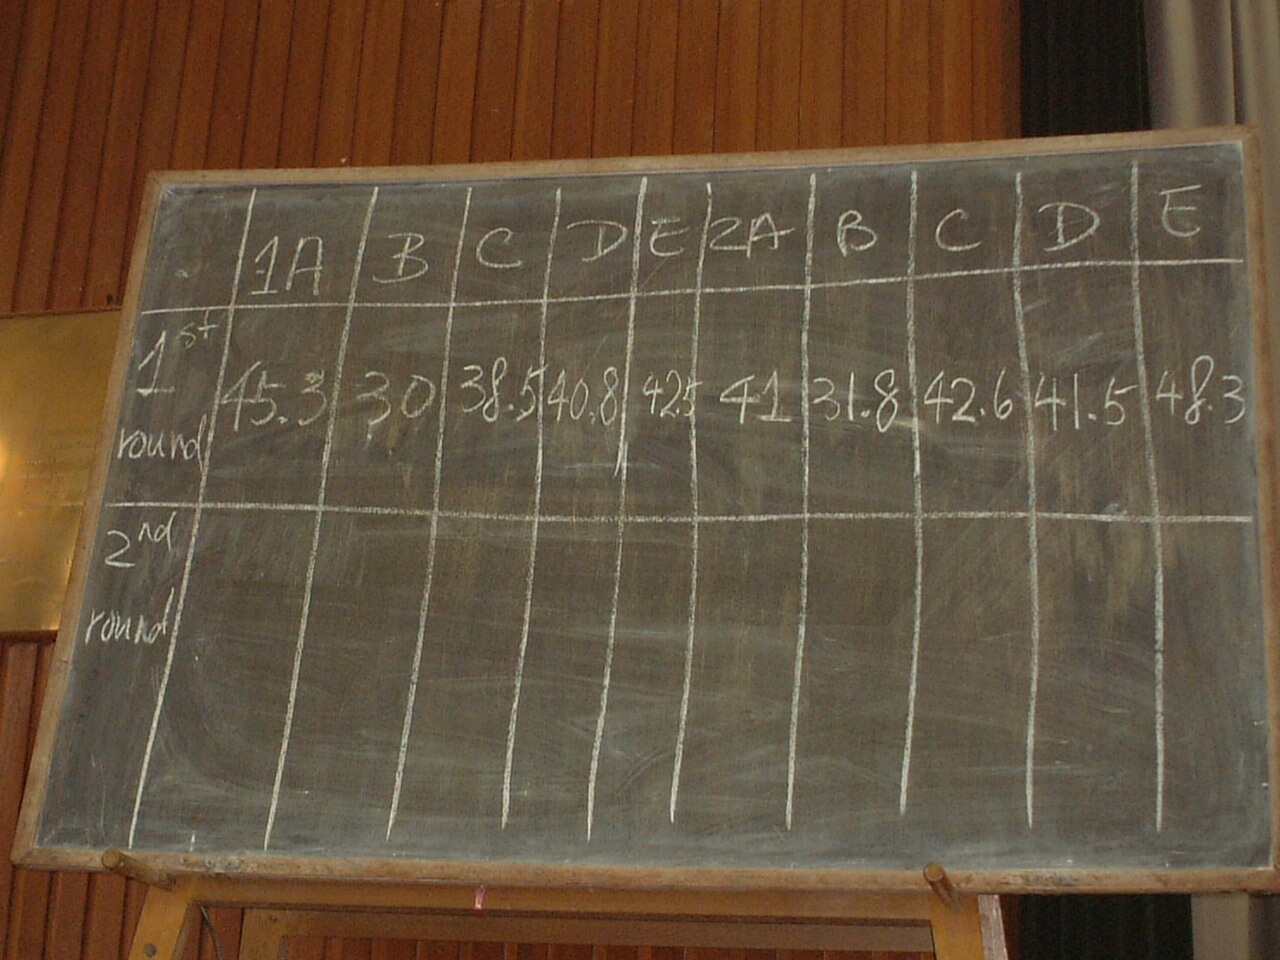 1A B C D E 2A B C D E
1st round 45.3 30 38.5 40.8 42.5 41 31.8 42.6 41.5 48.3
2nd round